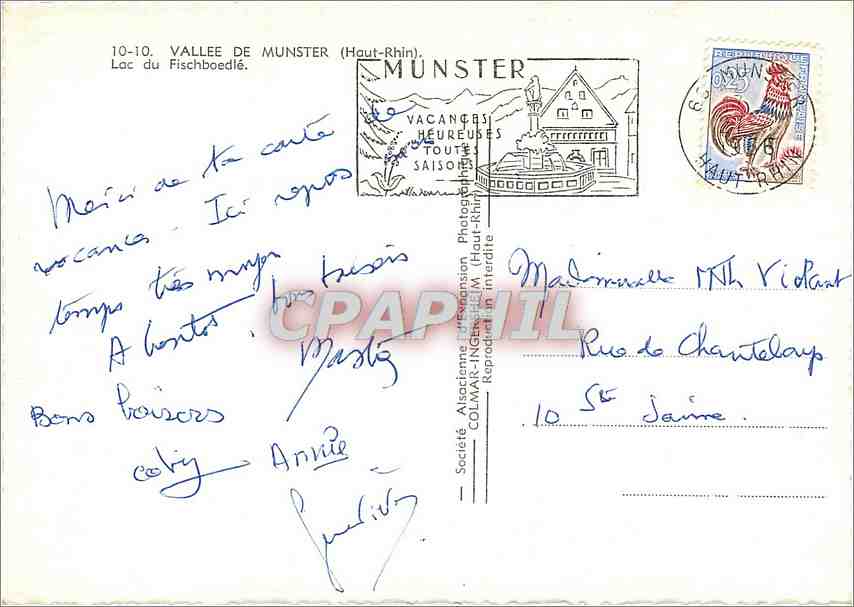 10-10. VALLEE DE MUNSTER (Haut-Rhin).
Lac du Fischboedlé.
MUNSTER
VACANCES
HEUREUSES
TOUTES
SAISONS
REPUBLIQUE FRANÇAISE
0,25
MUNSTER
HAUT-RHIN
Merci de ta carte de
vacances. Ici repos
temps très moyen
A bientôt. bons baisers
Bons baisers
Annie
Société Alsacienne d'Expansion Photographique
COLMAR-INGERSHEIM (Haut-Rhin)
Reproduction interdite
CPAPHIL
Mademoiselle MTh Violant
Rue de Chanteloup
10 Ste